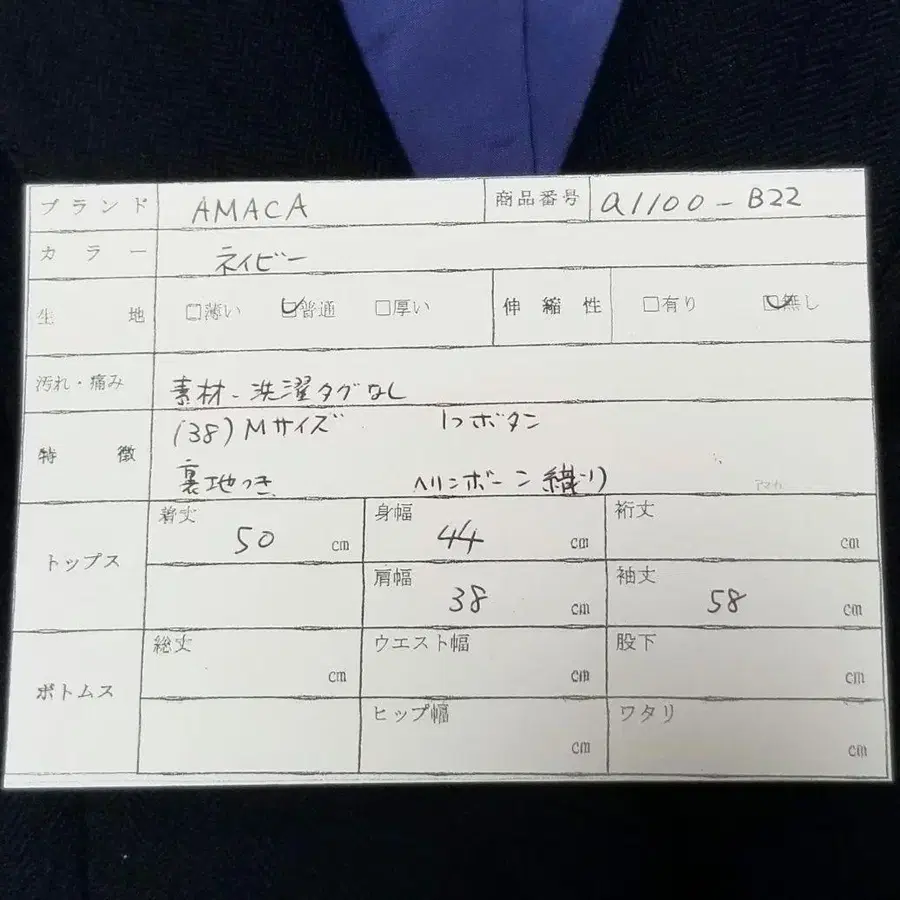 ブランド AMACA 商品番号 a1100-B22
カラー ネイビー
生地 □薄い ☑普通 □厚い 伸縮性 □有り ☑無し
汚れ・痛み 素材、洗濯タグなし
特徴 (38)Mサイズ 1つボタン
裏地つき ヘリンボーン織り
アマカ
トップス 着丈 50 cm 身幅 44 cm 裄丈 cm
肩幅 38 cm 袖丈 58 cm
ボトムス 総丈 cm ウエスト幅 cm 股下 cm
ヒップ幅 cm ワタリ cm